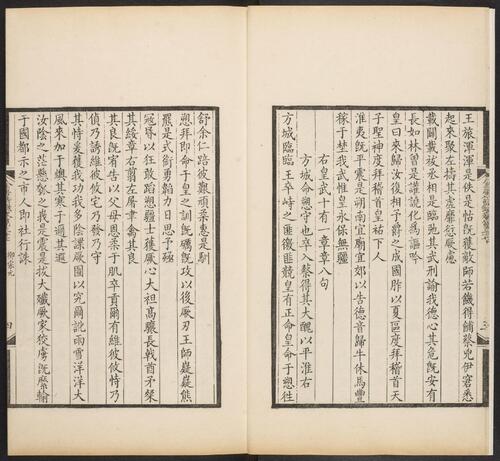 王旅渾渾是佚是怙既獲敵師若饑得餔蔡兇伊窘悉
起來聚左擣其虛靡愆厥慮
載闢載祓丞相是臨弛其武刑諭我德心其危既安有
長如林曾是讙譊化為謳吟
皇曰來歸汝復相予爵之成國胙以夏區度拜稽首天
子聖神度拜稽首皇祐下人
淮夷既平震是朔南宜廟宜郊以告德音歸牛休馬豐
稼于埜我武惟皇永保無疆
右皇武十有一章章八句
方城命愬守也卒入蔡得其大醜以平淮右
方城臨臨王卒峙之匪徼匪競皇有正命皇命于愬往
舒余仁踣彼艱頑柔惠是馴
愬拜即命于皇之訓既礪既攻以後厥刃王師嶷嶷熊
羆是式銜勇韜力日思予殛
寇昏以狂敢蹈愬疆士獲厥心大袒高驤長戟酋矛粲
其綏章右翦左屠聿禽其良
其良既宥告以父母恩柔于肌卒貢爾有維彼攸恃乃
偵乃誘維彼攸宅乃發乃守
其恃爰獲我功我多陰諜厥圖以究爾訛雨雪洋洋大
風來加于燠其寒于邇其遐
汝陰之茫懸瓠之峨是震是拔大殲厥家狡虜既縻輸
于國都示之市人即社行誅